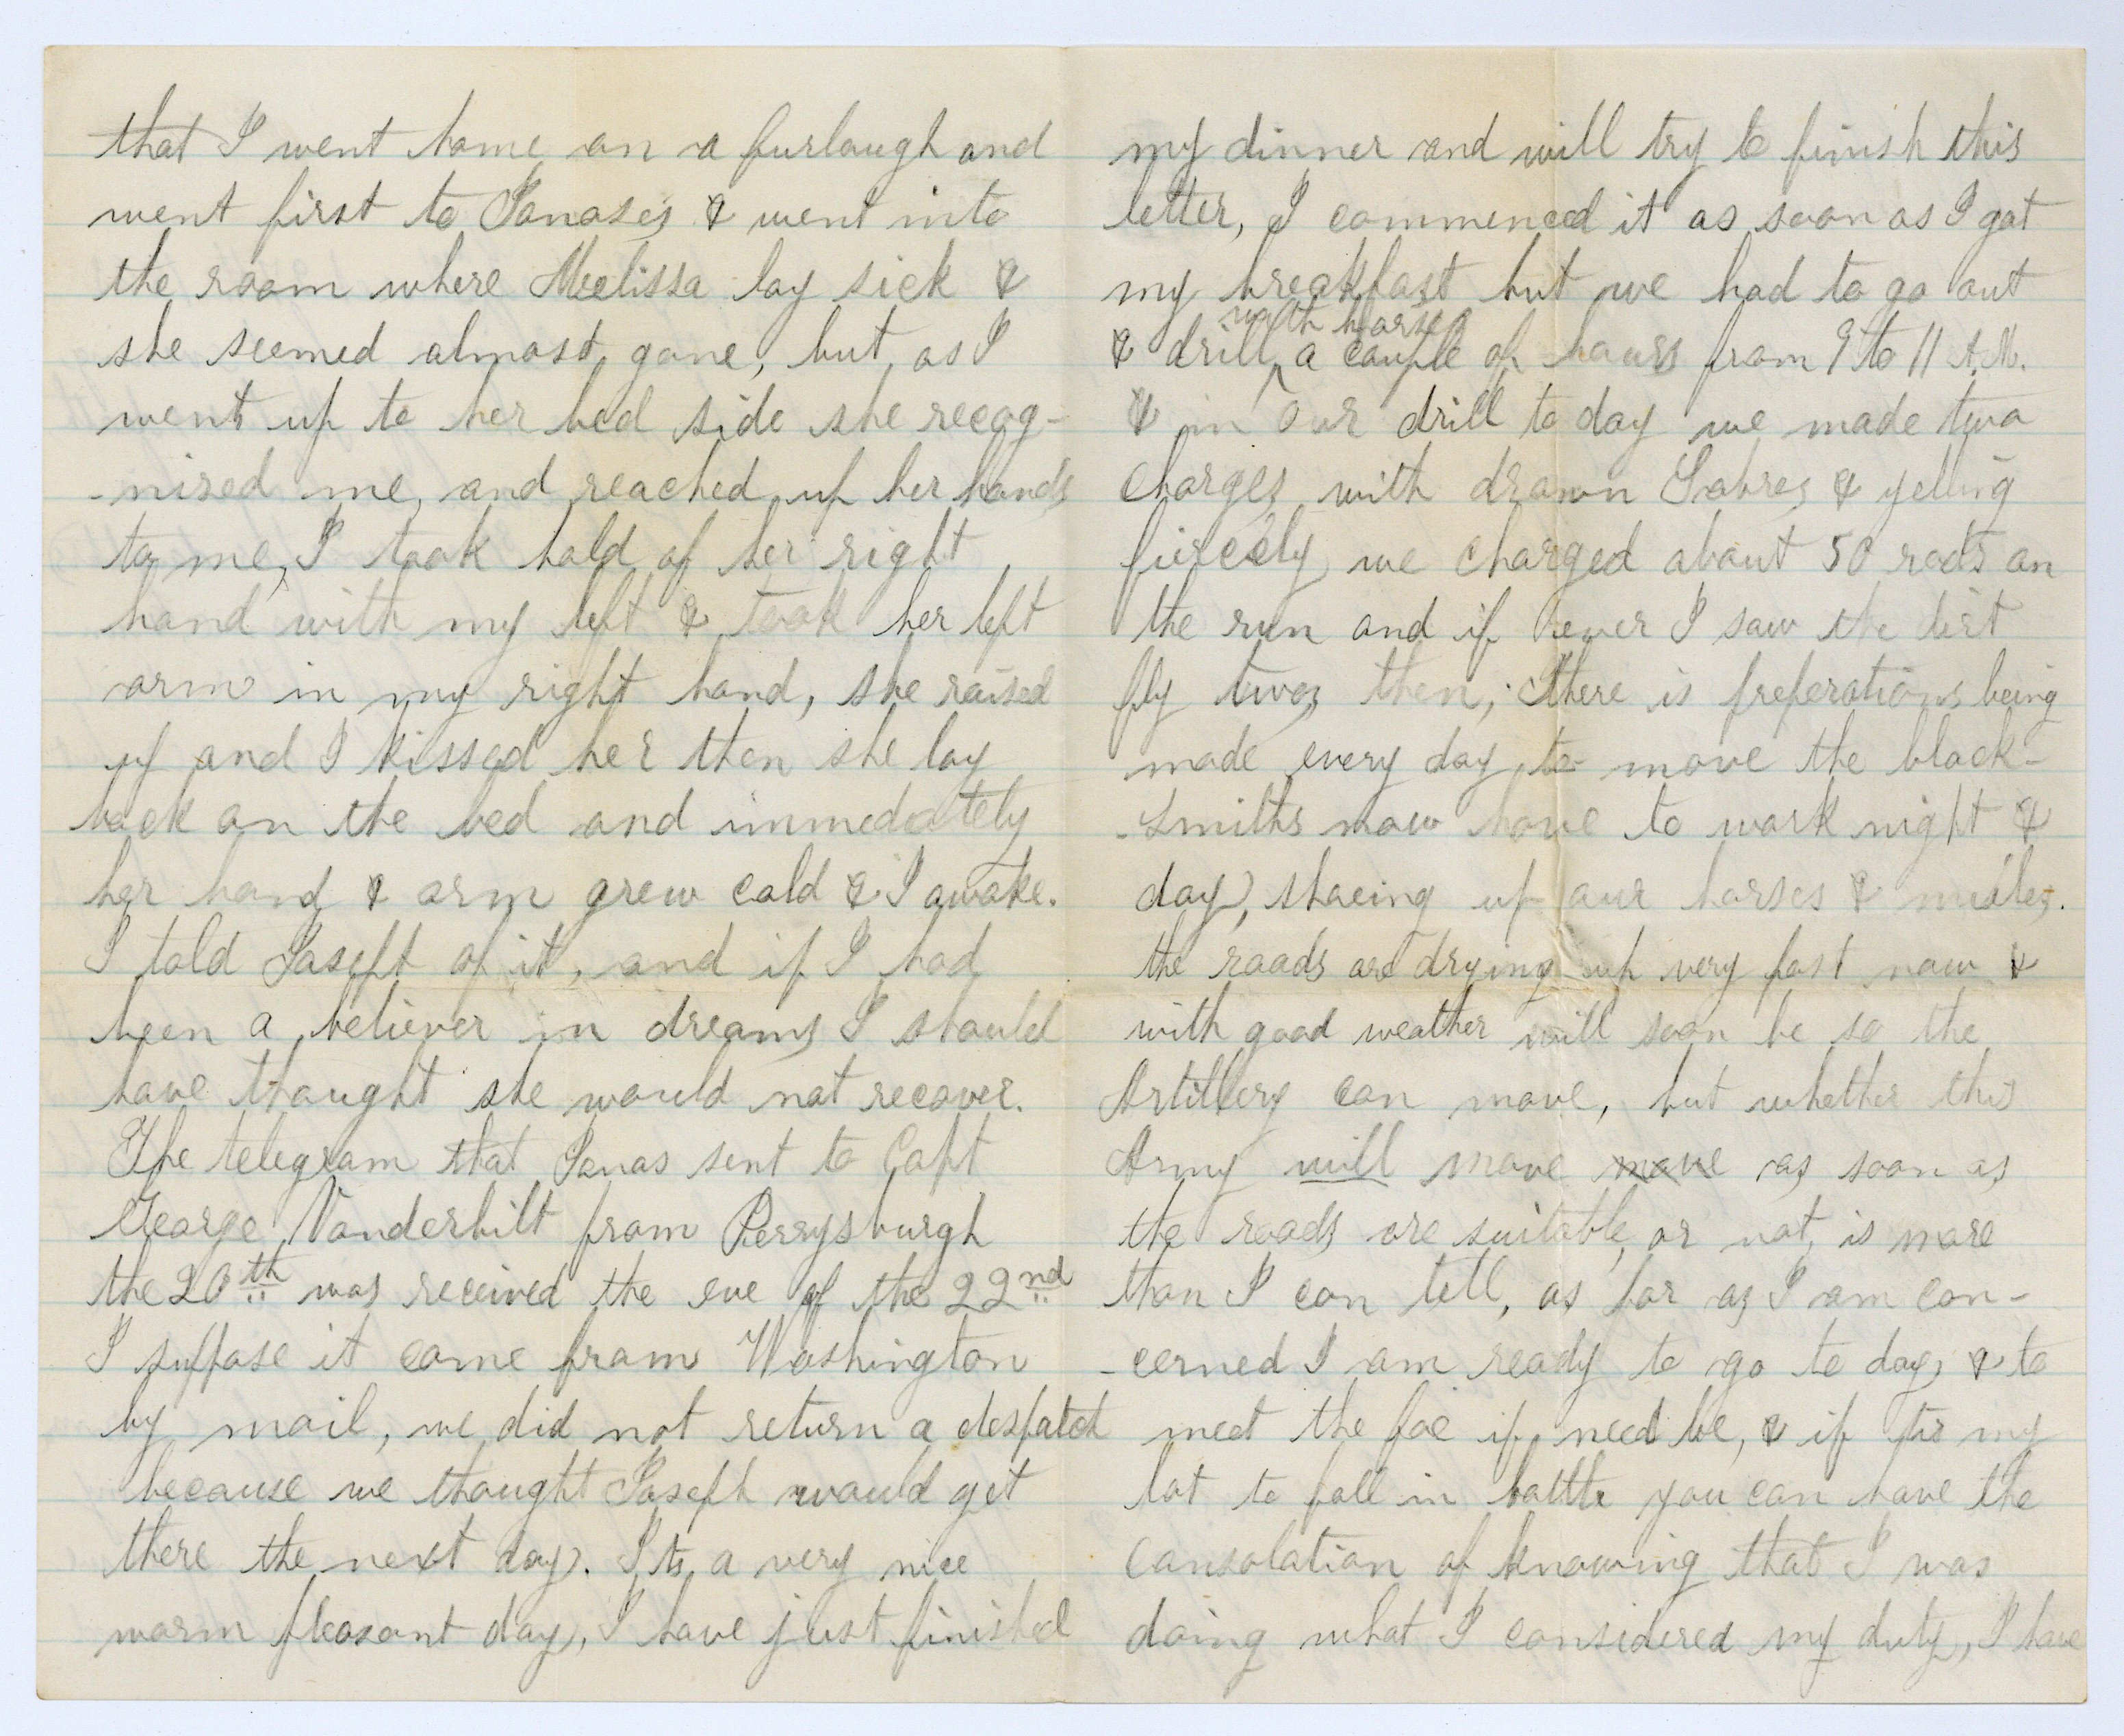 that I went home on a furlough and
went first to Jonases & went into
the room where Melissa lay sick &
she seemed almost gone, but as I
went up to her bed side she recog-
-nised me, and reached up her hands
to me, I took hold of her right
hand with my left & took her left
arm in my right hand, she raised
up and I kissed her then she lay
back on the bed and immedately
her hand & arm grew cold & I awoke.
I told Joseph of it, and if I had
been a believer in dreams I should
have thought she would not recover.
The telegram that Jonas sent to Capt
George Vanderbilt from Perrysburgh
the 20th was received the eve of the 22nd
I suppose it come from Washington
by mail, we did not return a despatch
because we thought Joseph would get
there the next day. Its a very nice
warm pleasant day, I have just finished
my dinner and will try to finish this
letter, I commenced it as soon as I got
my breakfast but we had to go out
with horses
& drill a couple of hours from 9 to 11 A.M.
& in our drill to day we made two
charges with drawn Sabres & yelling
fiercely we charged about 50 rods on
the run and if ever I saw the dirt
fly twas then, there is preperations being
made every day to move the black-
-smiths now have to work night &
day, shoeing up our horses & mules.
the roads are drying up very fast now &
with good weather will soon be so the
Artillery can move, but whether this
Army will move move as soon as
the roads are suitable, or not, is more
than I can tell, as far as I am con-
-cerned I am ready to go to day, & to
meet the foe if need be, & if tis my
lot to fall in battle you can have the
consolation of knowing that I was
doing what I considered my duty, I have